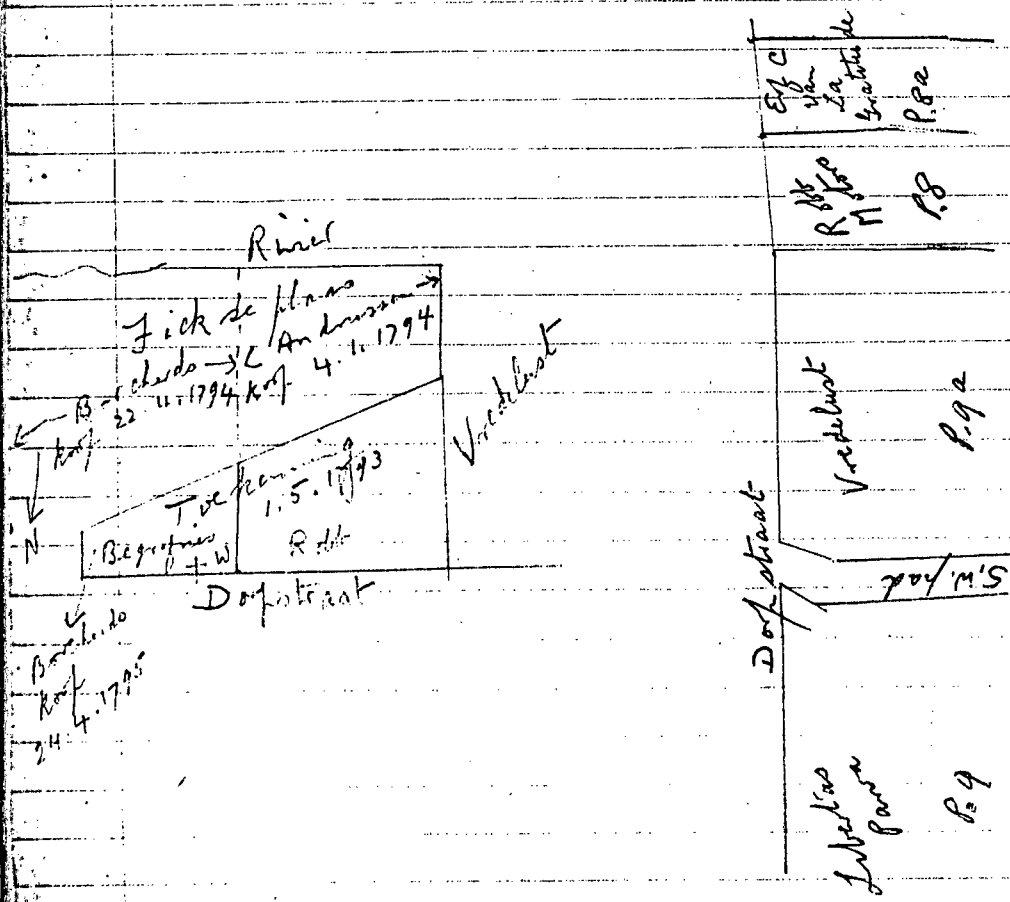 Rivier
Fick se plaas
Borcherds → C Andriessen →
koop 22.11.1794 koop 4.1.1794
Vredelust
N
Toekenning
1.5.1793
Begrafnis
+ W
Robb
Dorpstraat
Borcherds
koop
24.4.1795
Erf C
van
La
Gratitude
P.8a
Robb
P.8
Vredelust
P.9a
Dorpstraat
S.W. pad
Libertas
Parva
P.9